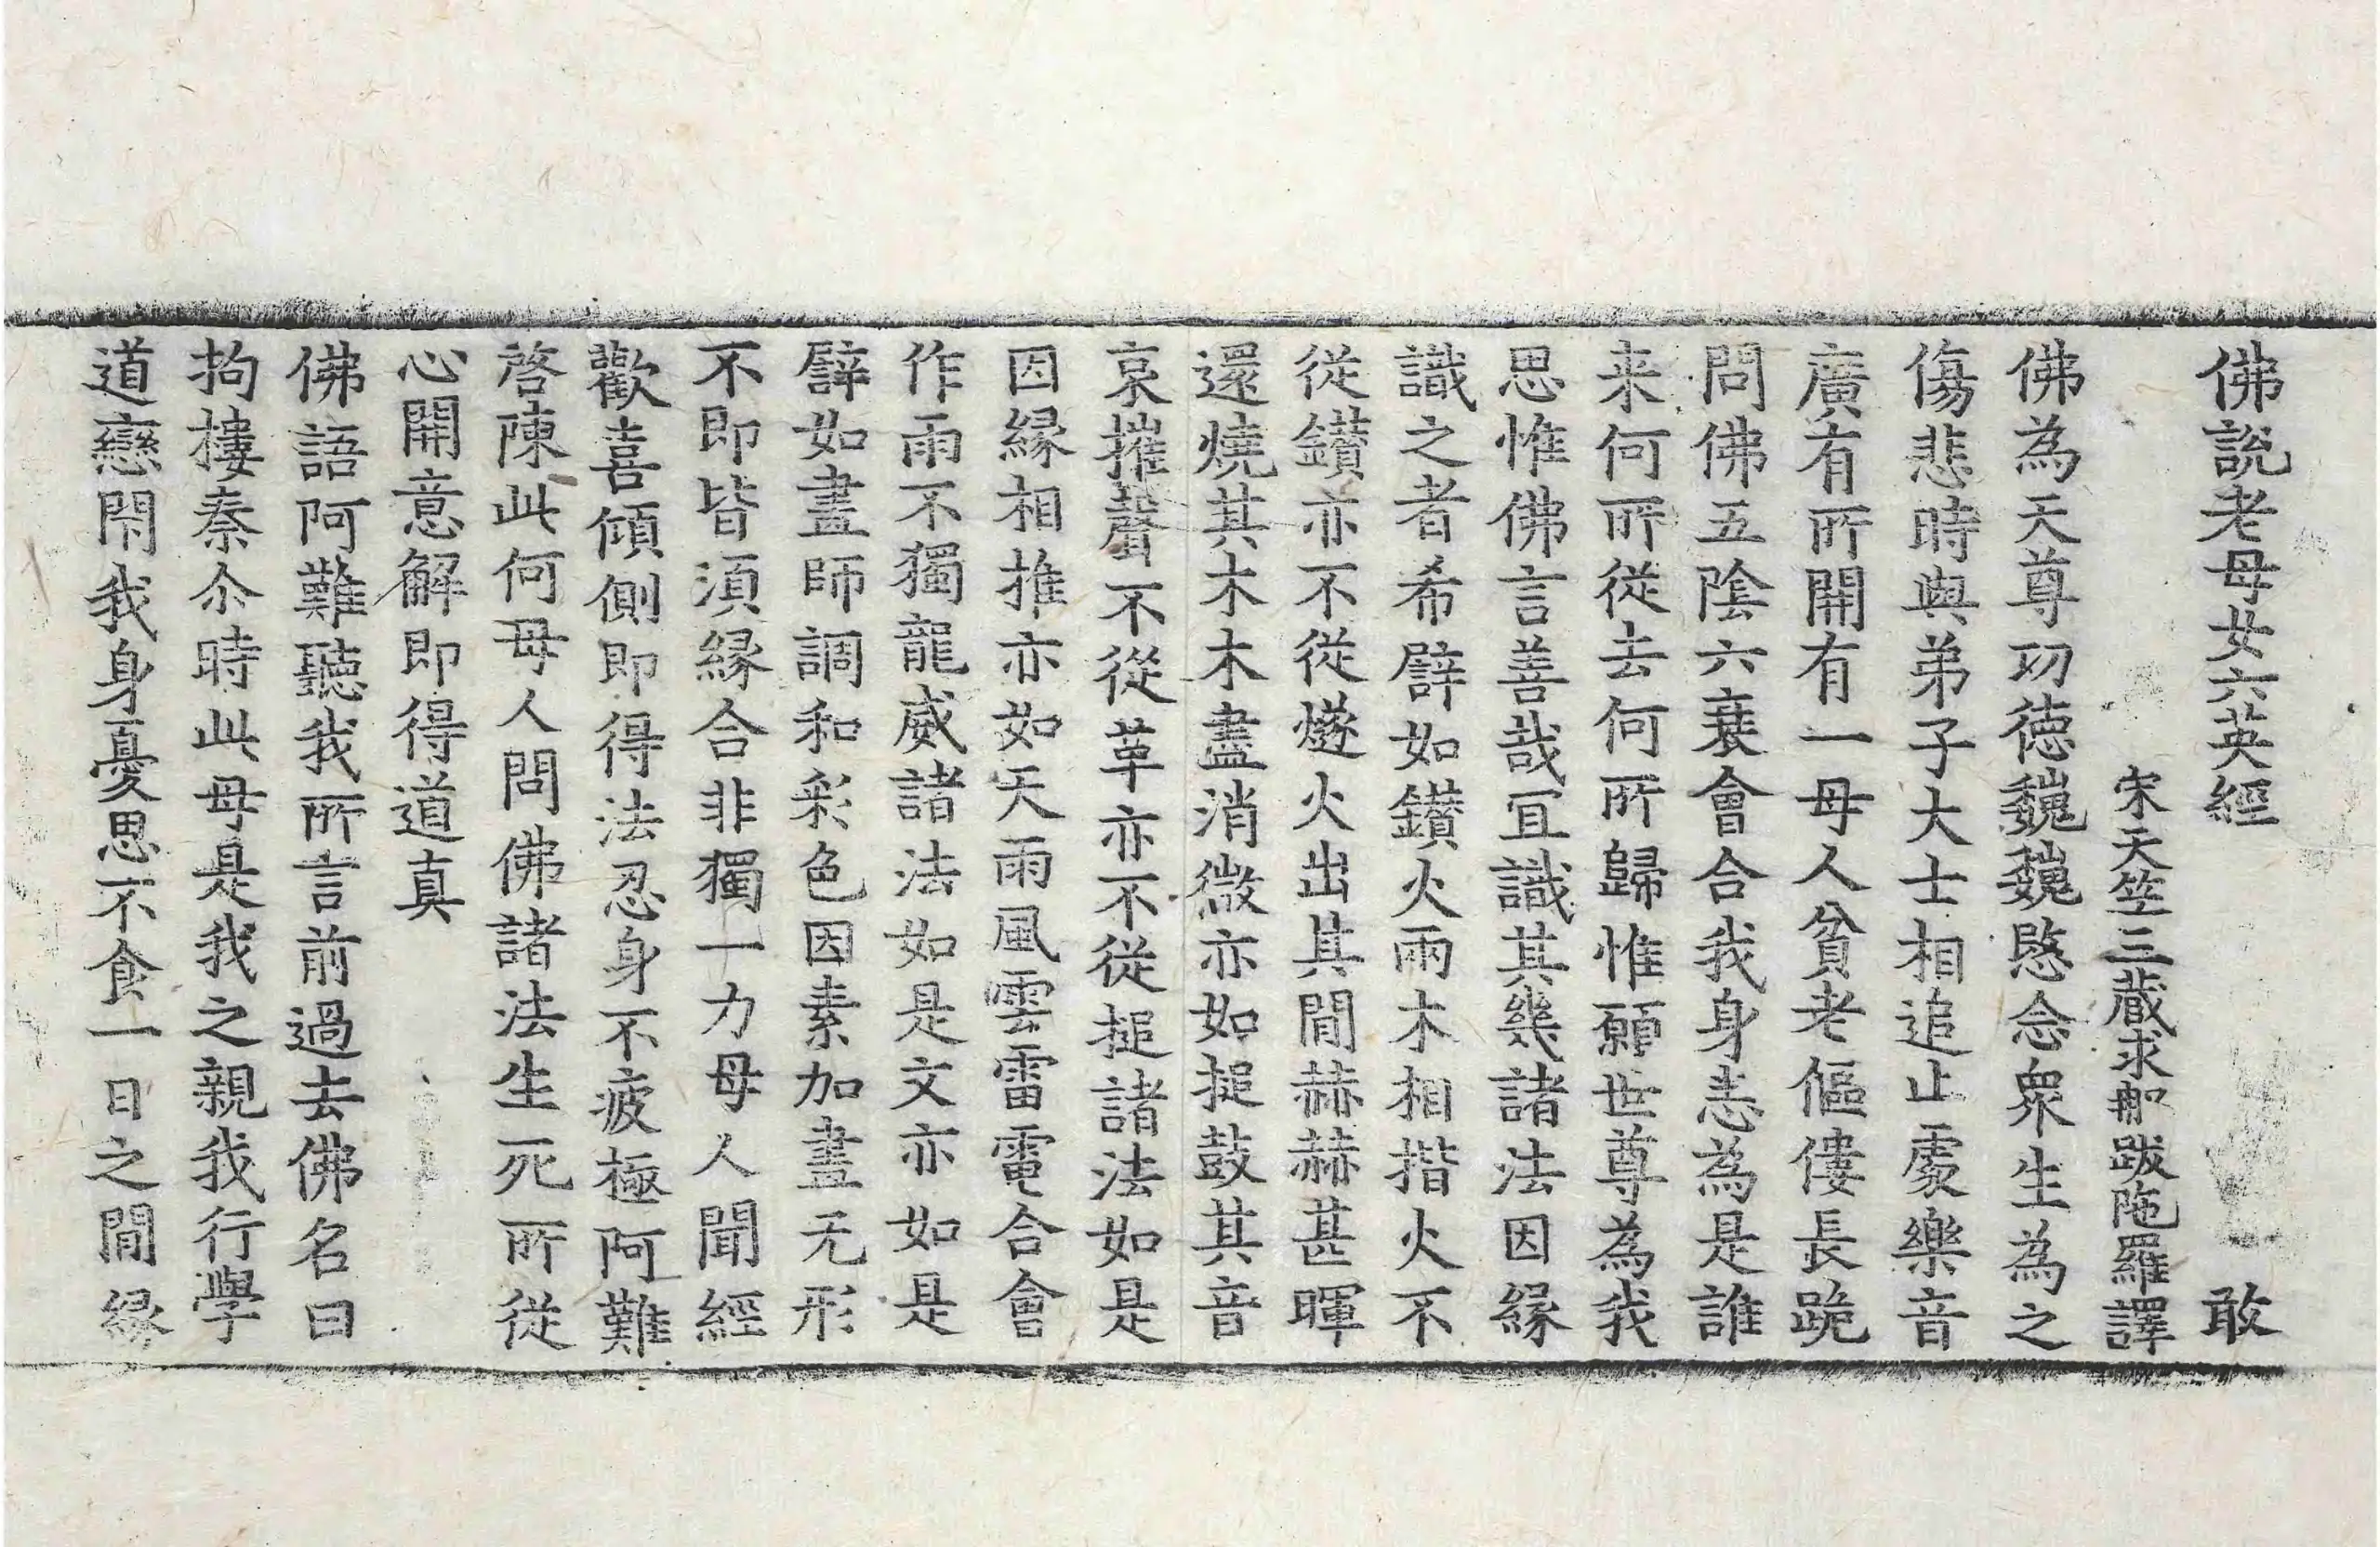 佛説老母女六英經 敢
宋天竺三藏求那跋陁羅譯
佛為天尊功德巍巍愍念衆生為之
傷悲時與弟子大士相追止處樂音
廣有所開有一母人貧老傴僂長跪
問佛五陰六衰會合我身恚為是誰
来何所從去何所歸惟願世尊為我
思惟佛言善哉冝識其幾諸法因緣
識之者希譬如鑚火兩木相揩火不
從鑚亦不從燧火出其間赫赫甚暉
還燒其木木盡消微亦如搥鼓其音
哀摧聲不從革亦不從搥諸法如是
因緣相推亦如天雨風雲雷電合會
作雨不獨龍威諸法如是文亦如是
譬如畫師調和彩色因素加畫无形
不即皆湏緣合非獨一力母人聞經
歡喜傾側即得法忍身不疲極阿難
啓陳此何母人問佛諸法生死所從
心開意解即得道真
佛語阿難聽我所言前過去佛名曰
拘樓秦尒時此母是我之親我行學
道戀閇我身憂思不食一日之間緣